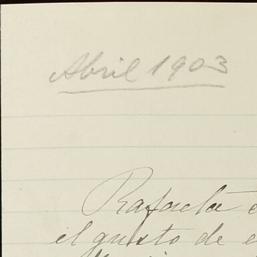 Abril 1903
Rafaela e
el gusto de e